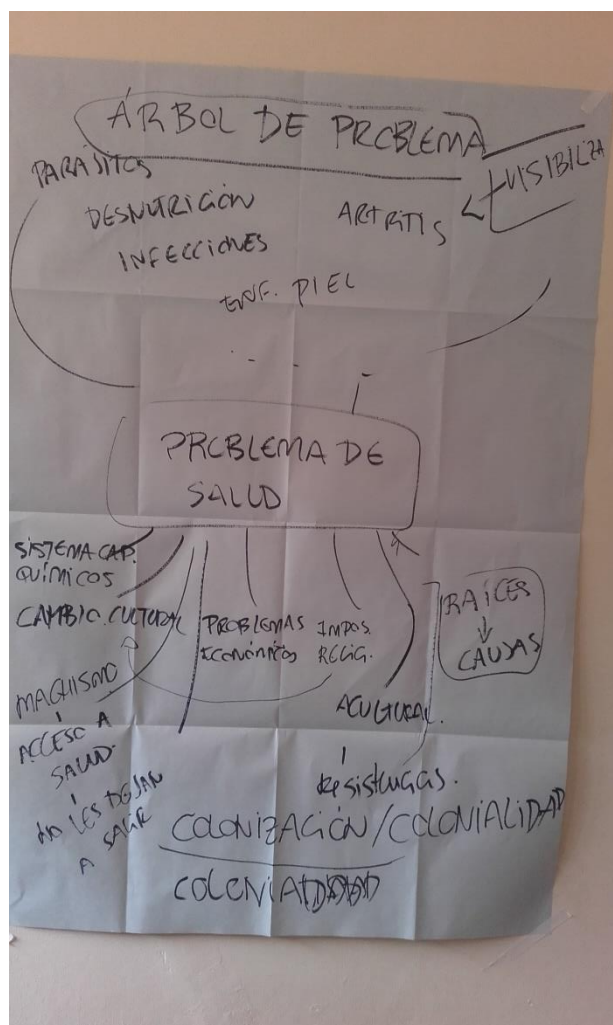 ÁRBOL DE PROBLEMA
VISIBILIZA
PARÁSITOS
DESNUTRICIÓN
ARTRITIS
INFECCIONES
ENF. PIEL
PROBLEMA DE
SALUD
SISTEMA CAP.
QUÍMICOS
CAMBIO CULTURAL
PROBLEMAS
ECONÓMICOS
IMPOS.
RELIG.
RAÍCES
CAUSAS
MACHISMO
ACCESO A
SALUD.
NO LES DEJAN
A SALIR
ACULTURAL.
Resistencias.
COLONIZACIÓN/COLONIALIDAD